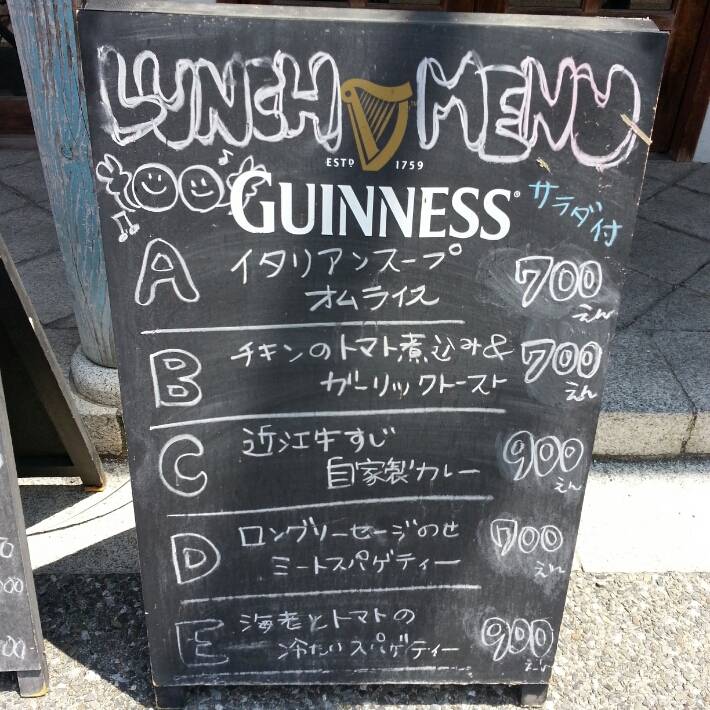 LUNCH MENU
ESTD 1759
GUINNESS
サラダ付
A イタリアンスープ
オムライス 700えん
B チキンのトマト煮込み&
ガーリックトースト 700えん
C 近江牛すじ
自家製カレー 900えん
D ロングソーセージのせ
ミートスパゲティー 700えん
E 海老とトマトの
冷たいスパゲティー 900えん